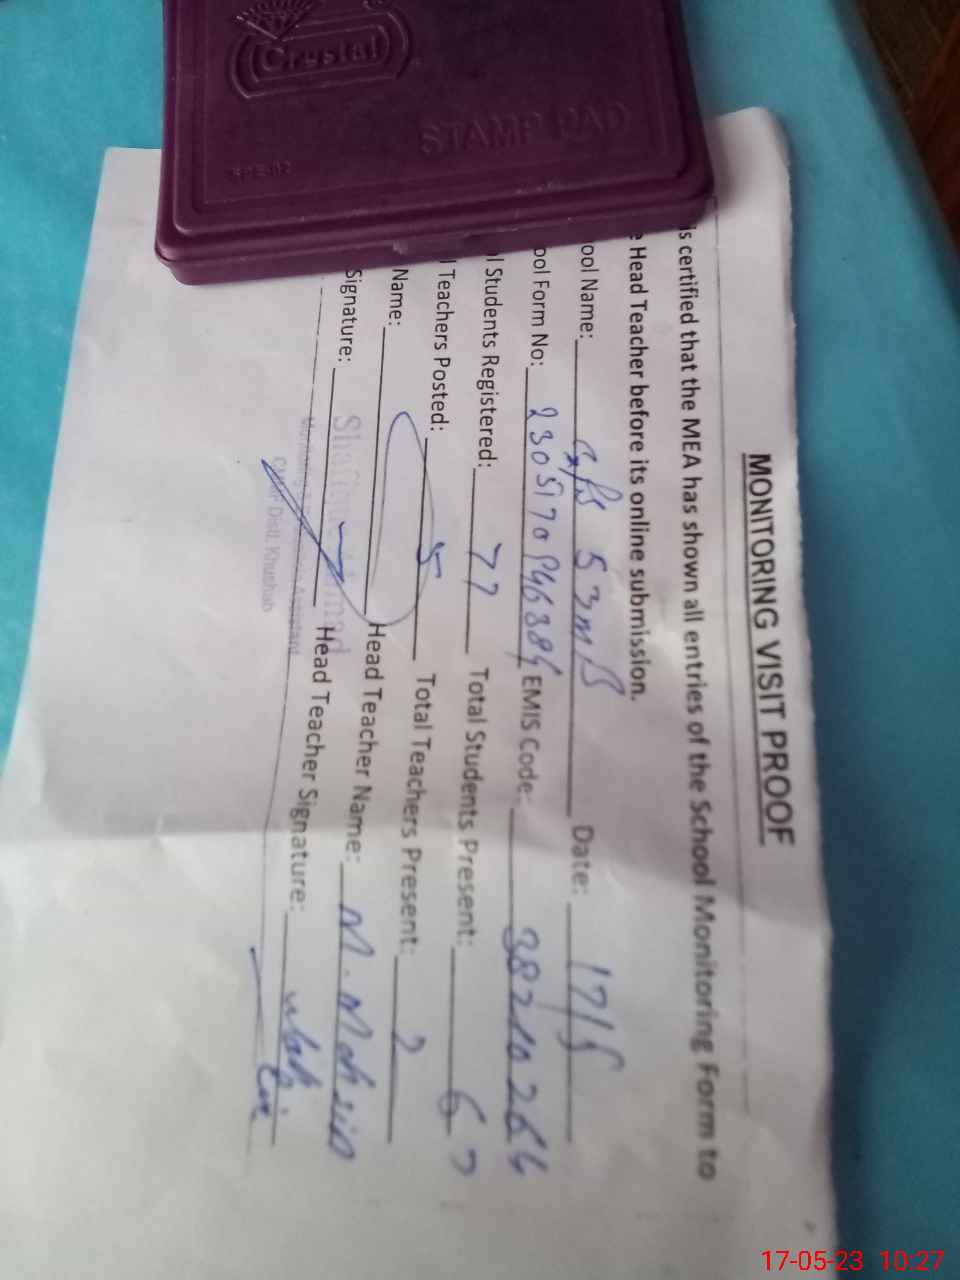 Crystal
STAMP PAD
MONITORING VISIT PROOF
is certified that the MEA has shown all entries of the School Monitoring Form to
e Head Teacher before its online submission.
ool Name: 53 MB Date: 17/5
ool Form No: EMIS Code: 38210264
al Students Registered: 77 Total Students Present: 67
l Teachers Posted: 5 Total Teachers Present: 2
Name: Head Teacher Name: M. Mohsin
Signature: Head Teacher Signature:
Distt. Khushab
17-05-23 10:27